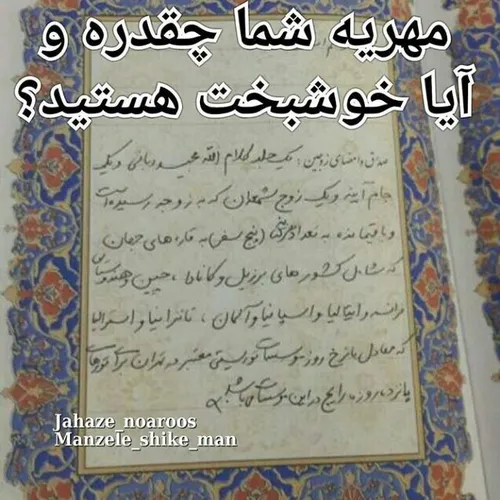 مهریه شما چقدره و
آیا خوشبخت هستید؟
صداق و امضای زوجین: یک جلد کلام الله مجید ربانی و یک
جام آینه و یک زوج شمعدان که به زوجه رسیده است
و باقیمانده به تعداد (پنج سفر) به قاره های جهان
که شامل کشورهای برزیل و کانادا، چین و هندوستان
فرانسه و ایتالیا و اسپانیا و آلمان، تانزانیا و استرالیا
که معادل با نرخ روز موسسات توریستی معتبر در تهران برای تورهای
پانزده روزه رایج در این موسسات می باشد
Jahaze_noaroos
Manzele_shike_man